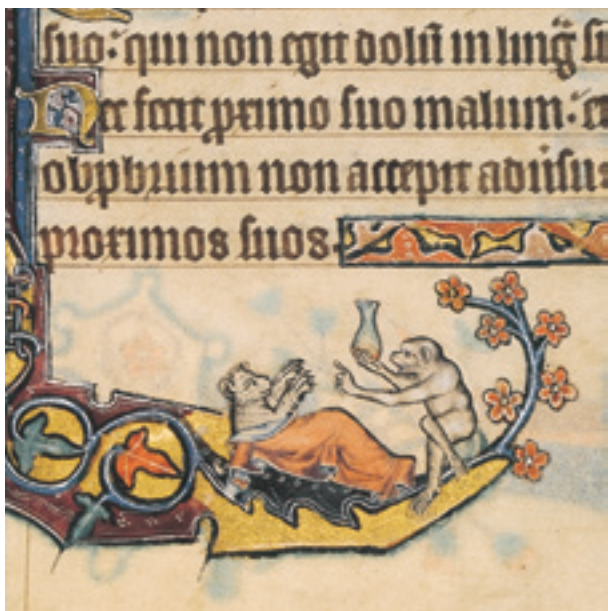 suo: qui non egit dolū in ling̃ su
Nec fecit p̄ximo suo malum: et
obp̄brium non accepit adūsus
proximos suos.